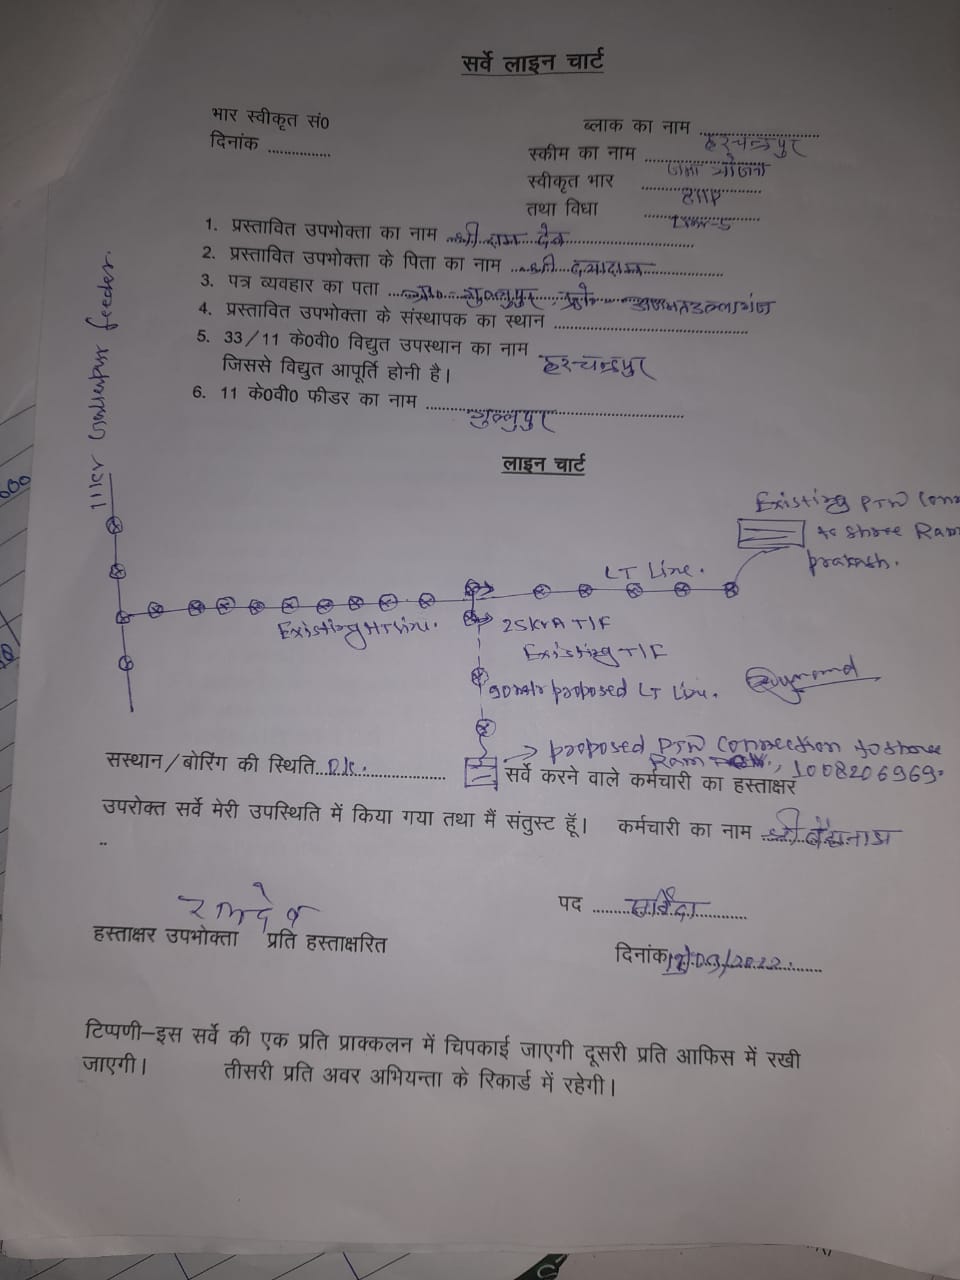 सर्वे लाइन चार्ट
भार स्वीकृत सं0
दिनांक ...............
ब्लाक का नाम हरचन्दपुर
स्कीम का नाम योजना
स्वीकृत भार
तथा विधा
1. प्रस्तावित उपभोक्ता का नाम श्री राम देव
2. प्रस्तावित उपभोक्ता के पिता का नाम श्री
3. पत्र व्यवहार का पता गुल्लुपुर
4. प्रस्तावित उपभोक्ता के संस्थापक का स्थान ...............
5. 33/11 के0वी0 विद्युत उपस्थान का नाम हरचन्दपुर
जिससे विद्युत आपूर्ति होनी है।
6. 11 के0वी0 फीडर का नाम गुल्लुपुर
लाइन चार्ट
11KV feeder.
Existing PTW Conn
to Shree Ram
prakash.
LT Line.
Existing HT line.
25KVA T/F
Existing T/F
90mtr proposed LT Line.
proposed PTW Connection to Shree
Ram 1008206969.
सस्थान/बोरिंग की स्थिति OK.
सर्वे करने वाले कर्मचारी का हस्ताक्षर
उपरोक्त सर्वे मेरी उपस्थिति में किया गया तथा मैं संतुस्ट हूँ।
कर्मचारी का नाम श्री
रामदेव
हस्ताक्षर उपभोक्ता प्रति हस्ताक्षरित
पद संविदा
दिनांक /2022.
टिप्पणी–इस सर्वे की एक प्रति प्राक्कलन में चिपकाई जाएगी दूसरी प्रति आफिस में रखी
जाएगी। तीसरी प्रति अवर अभियन्ता के रिकार्ड में रहेगी।